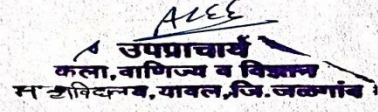 उपप्राचार्य
कला,वाणिज्य व विज्ञान
महाविद्यालय,यावल,जि.जळगांव